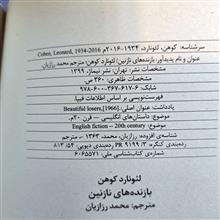 سرشناسه: کوهن، لئونارد، ۱۹۳۴-۲۰۱۶م Cohen, Leonard, 1934-2016
عنوان و نام پدیدآور: بازنده‌های نازنین/ لئونارد کوهن؛ مترجم محمد رزازیان
مشخصات نشر: تهران: نشر نیماژ، ۱۳۹۹
مشخصات ظاهری: ۳۶۰ ص
شابک: ۹۷۸-۶۰۰-۳۶۷-۶۱۷-۶
فهرست‌نویسی بر اساس اطلاعات فیپا
یادداشت: عنوان اصلی: Beautiful losers,[1966]
موضوع: داستان‌های انگلیسی -- قرن ۲۰م
موضوع: English fiction -- 20th century
شناسه‌ی افزوده: رزازیان، محمد، ۱۳۶۳ -، مترجم
رده‌بندی کنگره: PR ۹۱۹۹/۳ رده‌بندی دیویی: ۸۱۳/۵۴
شماره‌ی کتاب‌شناسی ملی: ۶۰۶۵۵۷۱
لئونارد کوهن
بازنده‌های نازنین
مترجم: محمد رزازیان